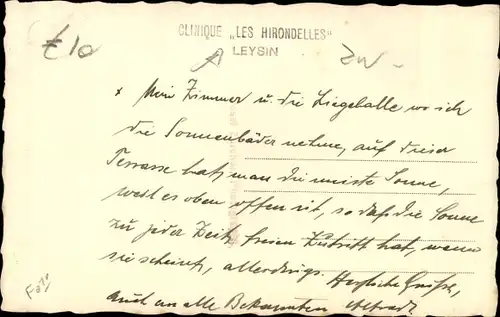 CLINIQUE „LES HIRONDELLES"
LEYSIN
£10
ZW-
x Mein Zimmer u. die Liegehalle wo ich
die Sonnenbäder nehme, auf dieser
Terrasse hat man die meiste Sonne,
weil es oben offen ist, so daß die Sonne
zu jeder Zeit freien Zutritt hat, wenn
sie scheint, allerdings. Herzliche Grüße,
auch an alle Bekannten
Foto